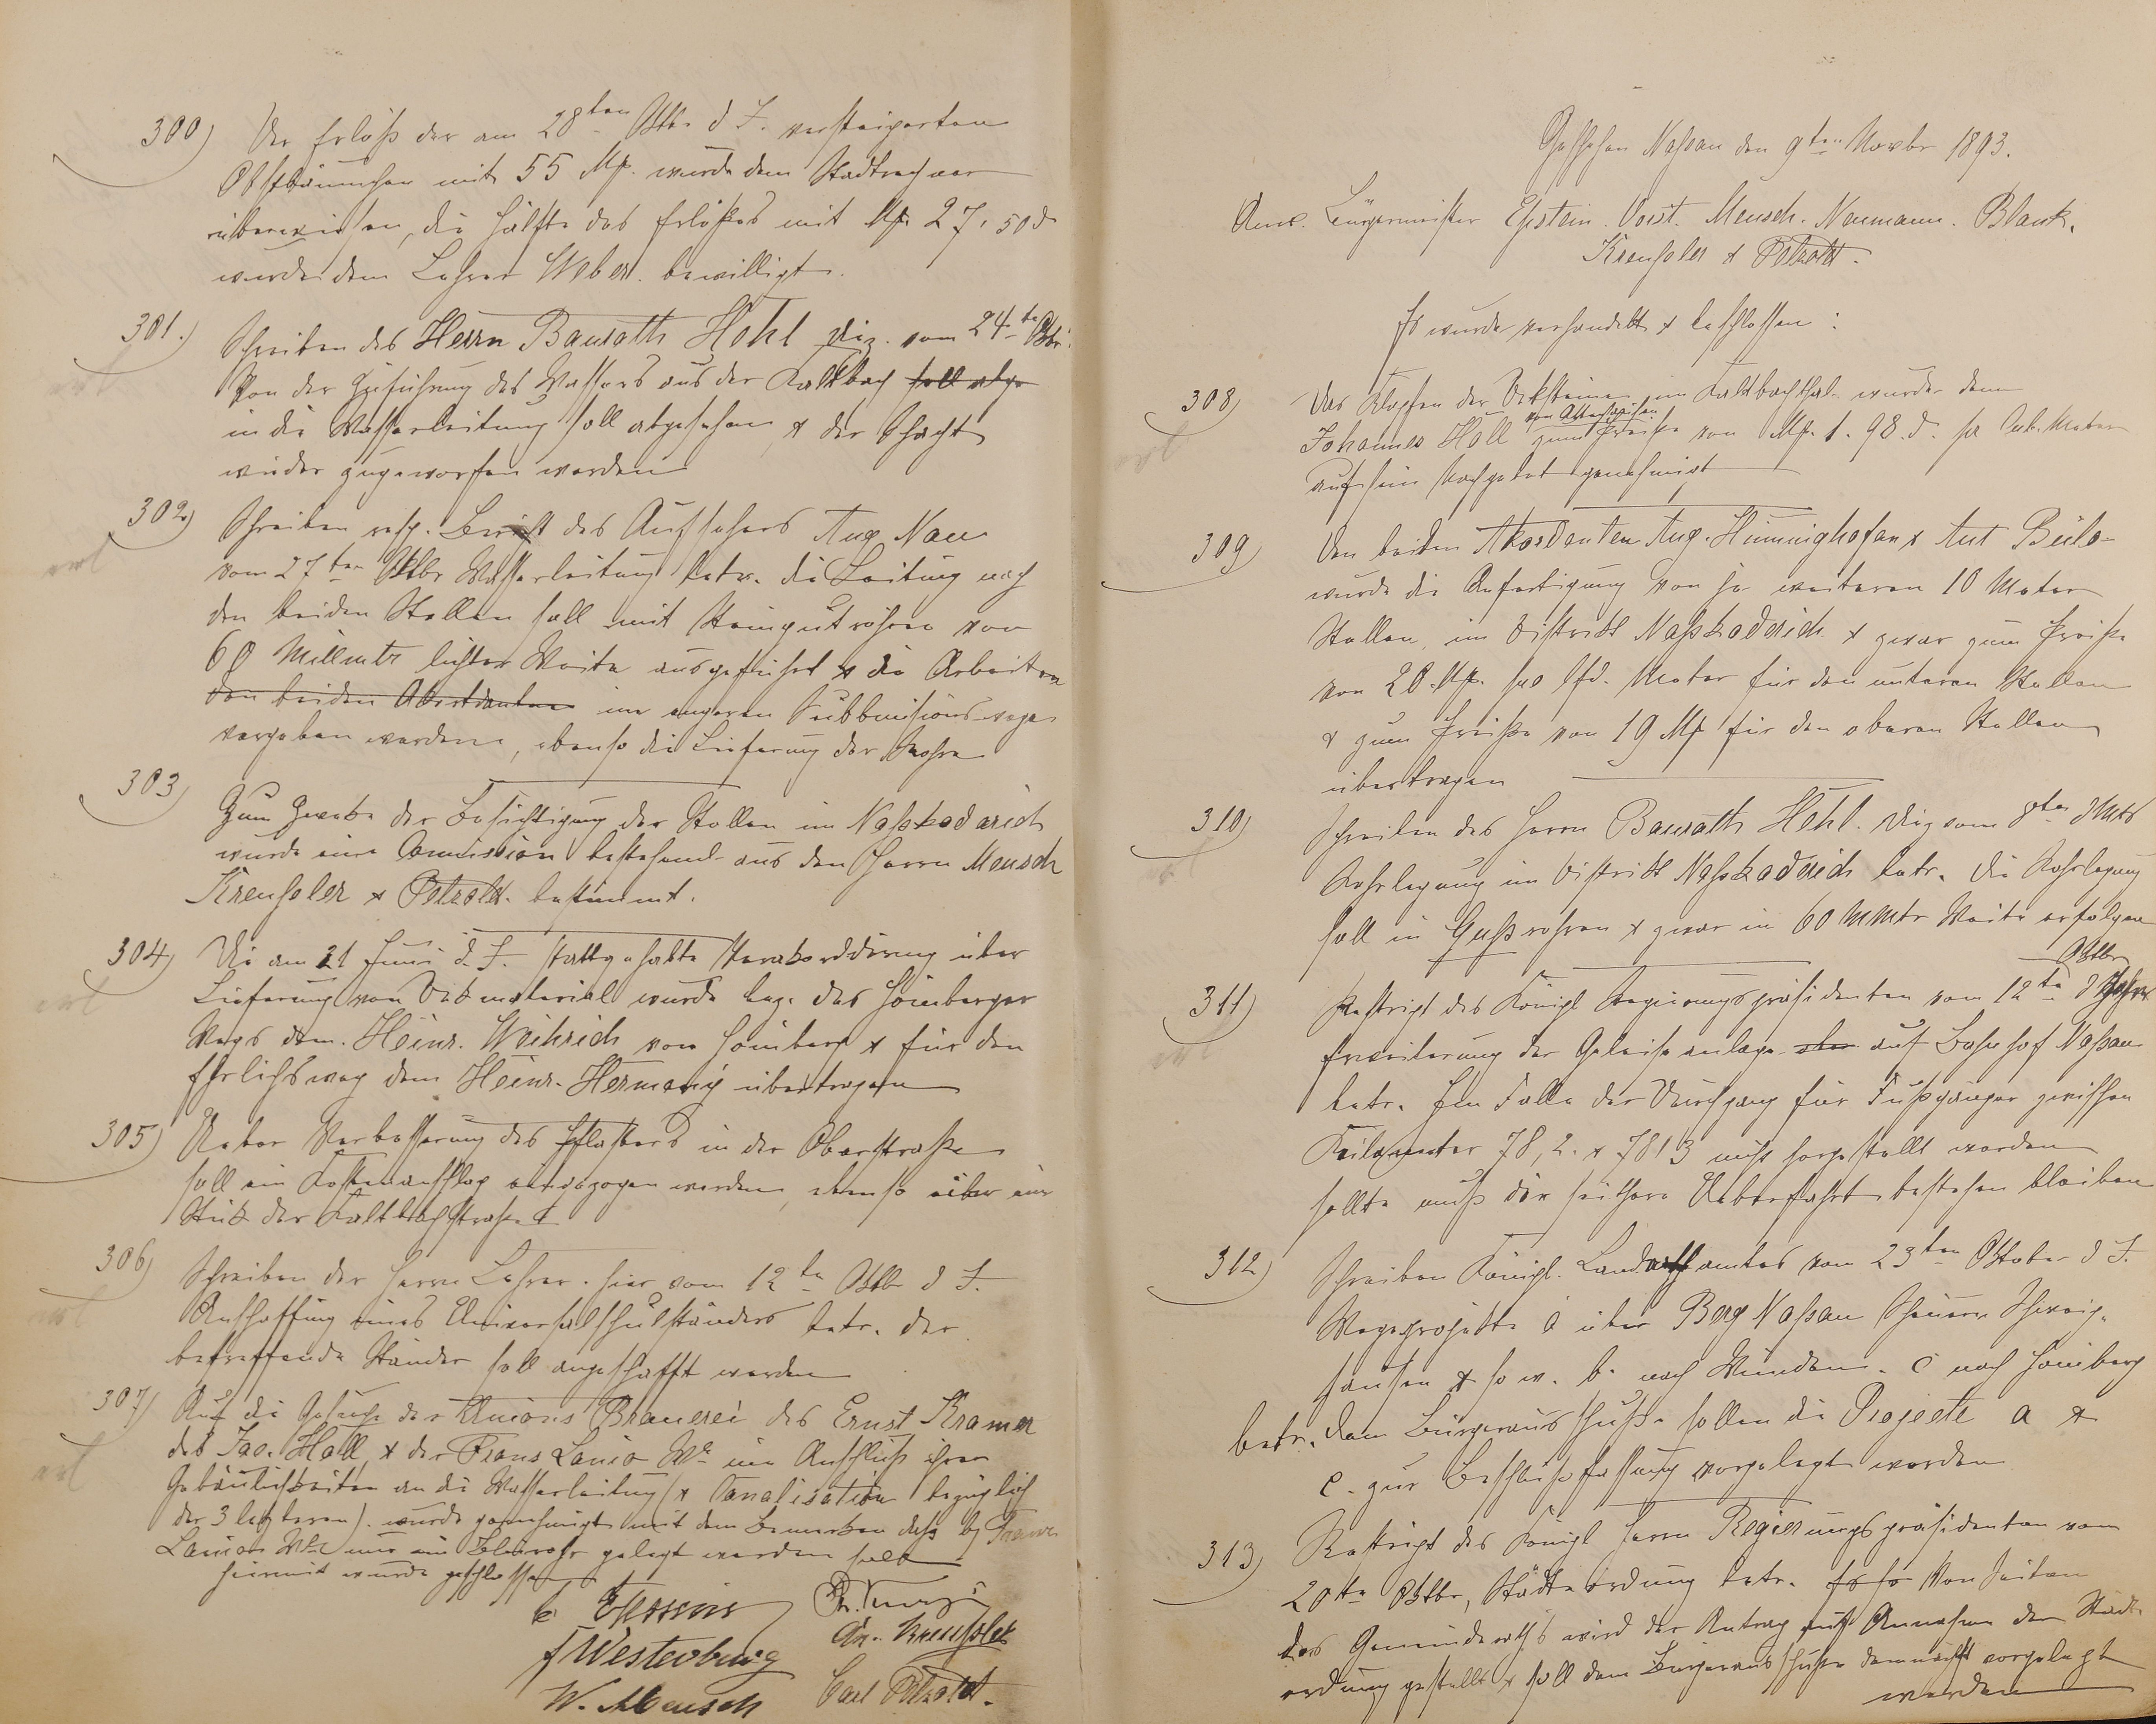 300) Der Erlöß der am 28ten Oktbr d J. versteigerten
Obstbäumchen mit 55 Mk. wurde dem Stadtrechner
überwiesen, die Hälfte des Erlößes mit Mk 27,50 d
wurde dem Lehrer Weber bewilligt.
301.) Schreiben des Herrn Baurath Hehl Diez. vom 24te Oktbr.
Von der Zuführung des Wassers aus der Kaltbach soll abge
in die Wasserleitung soll abgesehen & der Schacht
wieder zugeworfen werden
302) Schreiben resp. Bericht des Aufsehers Aug Nau
vom 27ten Oktbr Wasserleitung betr. die Leitung nach
den beiden Stollen soll mit Steingutröhren von
60 Millmtr lichter Weite ausgeführt & die Arbeiten
den beiden Akordanten im engeren Submissionswege
vergeben werden, ebenso die Lieferung der Rohre
303) Zum Zwecke der Besichtigung der Stollen im Naßkoderich
wurde eine Commission bestehend aus den Herrn Mensch
Kreuseler & Petzold. bestimmt.
304) Die am 21 Juni d. J. stattgehabte Verakordirung über
Lieferung von Deckmaterial wurde bez. des Hömberger
Wegs dem. Heinr. Weihrich von Hömberg & für den
Ehrlichsweg dem Heinr. Hermany übertragen
305) Ueber Verbesserung des Pflasters in der Oberstraße
soll ein Kostenanschlag angezogen werden, ebenso über ein
Stück der Kaltbachstraße
306) Schreiben der Herrn Lehrer hier vom 12te Oktbr d J.
Anschaffung eines Universalschulständers betr. der
betreffende Ständer soll angeschafft werden
307) Auf die Gesuche der Unions Brauerei des Ernst Kramer
des Jac. Höll & der Franz Lanio We um Anschluß ihrer
Gebäulichkeiten an die Wasserleitung (& Canalisation bezüglich
der 3 letzteren). wurde genehmigt mit dem Bemerken daß bj Franz
Lanio We nur ein Bleirohr gelegt werden soll
hiermit wurde geschlossen
F Westerburg Chr. Kreuseler
W. Mensch Carl Petzold.
Geschehen Naßau den 9ten Novbr 1893.
Anw. Bürgermeister Epstein. Vorst. Mensch. Neumann. Blank.
Kreuseler & Petzold.
Es wurde verhandelt & beschlossen:
308) Das Klopfen der Decksteine im Kaltbachthal wurde dem
Johannes Höll zum Preise von Mk. 1. 98. d. pr Cub. Meter
auf sein Nachgebot genehmigt
309) Den beiden Akordanten Aug. Hinninghofen & Ant Bülo-
wurde die Anfertigung von je weiteren 10 Meter
Stollen im Distrikt Naßkoderich & zwar zum Preiße
von 20. Mk. pro lfd. Meter für den unteren Stollen
& zum Preiße von 19 Mk für den oberen Stollen
übertragen
310) Schreiben des Herrn Baurath Hehl. Diez vom 8ten d Mts
Rohrlegung im Distrikt Naßkoderich betr. Die Rohrlegung
soll in Gußrohren & zwar in 60 MMtr Weite erfolgen
311) Reskript des Königl Regierungspräsidenten vom 12te Oktbr d Jahres
Erweiterung der Geleiseanlage auf Bahnhof Naßau
betr. Im Falle der Durchgang für Fußgänger zwischen
Kilometer 78,2. & 78,3 nicht hergestellt werden
sollte muß die seithere Ueberfahrt bestehen bleiben
312) Schreiben Königl. Landrathsamtes vom 23ten Oktober d J.
Wegeprojekte a über Berg Naßau Scheuern Schweig-
hausen & s. w. b. nach Winden. c nach Hömberg
betr. dem Bürgerausschuße sollen die Projecte a &
c. zur Beschlußfassung vorgelegt werden
313) Reskript des Königl Herrn Regierungspräsidenten vom
20te Oktbr, Städteordnung betr. Es so Von Seiten
des Gemeinderaths wird der Antrag auf Annahme der Städte
ordnung gestellt & soll dem Bürgerausschuße demnächst vorgelegt
werden